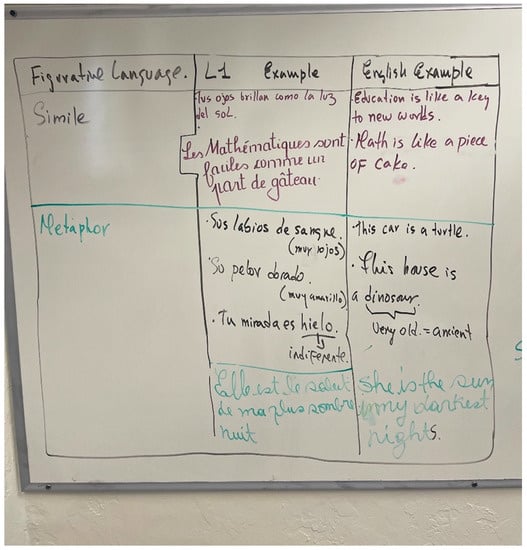 Figurative Language. L1 Example English Example
Simile
Tus ojos brillan como la luz
del sol.
Les Mathématiques sont
faciles comme un
part de gâteau.
Education is like a key
to new worlds.
Math is like a piece
of cake.
Metaphor
Sus labios de sangre.
(muy rojos)
Su pelo dorado.
(muy amarillo)
Tu mirada es hielo.
indiferente.
Elle est le soleil
de ma plus sombre
nuit
This car is a turtle.
This house is
a dinosaur.
Very old. = ancient
She is the sun
in my darkest
nights.